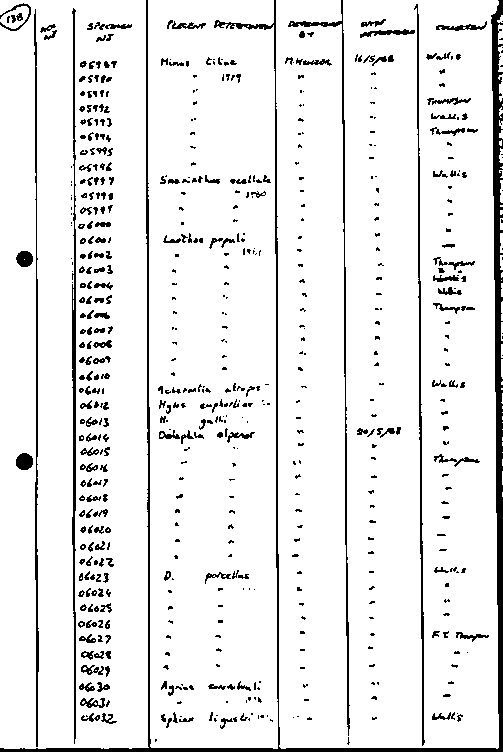 138
SPECIMEN NO PRESENT DETERMINATION DETERMINED BY DATE DETERMINED COLLECTION
05989 Mimas tiliae M. HENZOR 16/5/88 Wallis
05990 " 1979 " " "
05991 " " "
05992 " " " Thompson
05993 " " " Wallis
05994 " " " Thompson
05995 " " " "
05996 " " " "
05997 Smerinthus ocellata " " Wallis
05998 " " 1980 " " "
05999 " " " " "
06000 " " " " "
06001 Laothoe populi " " "
06002 " " 1981 " " Thompson
06003 " " " " Wallis
06004 " " " " Wallis
06005 " " " " Thompson
06006 " " " " "
06007 " " " " "
06008 " " " " "
06009 " " " " "
06010 " " " " "
06011 Acherontia atropos " " Wallis
06012 Hyles euphorbiae " " "
06013 H. gallii " " "
06014 Deilephila elpenor " 20/5/88 "
06015 " " " " "
06016 " " " " Thompson
06017 " " " " "
06018 " " " " "
06019 " " " " "
06020 " " " " "
06021 " " " " "
06022 " " " " "
06023 D. porcellus " " Wallis
06024 " " " "
06025 " " " " "
06026 " " " " "
06027 " " " " F.T. Thompson
06028 " " " " "
06029 " " " " "
06030 Agrius convolvuli " " "
06031 " " " "
06032 Sphinx ligustri " " Wallis